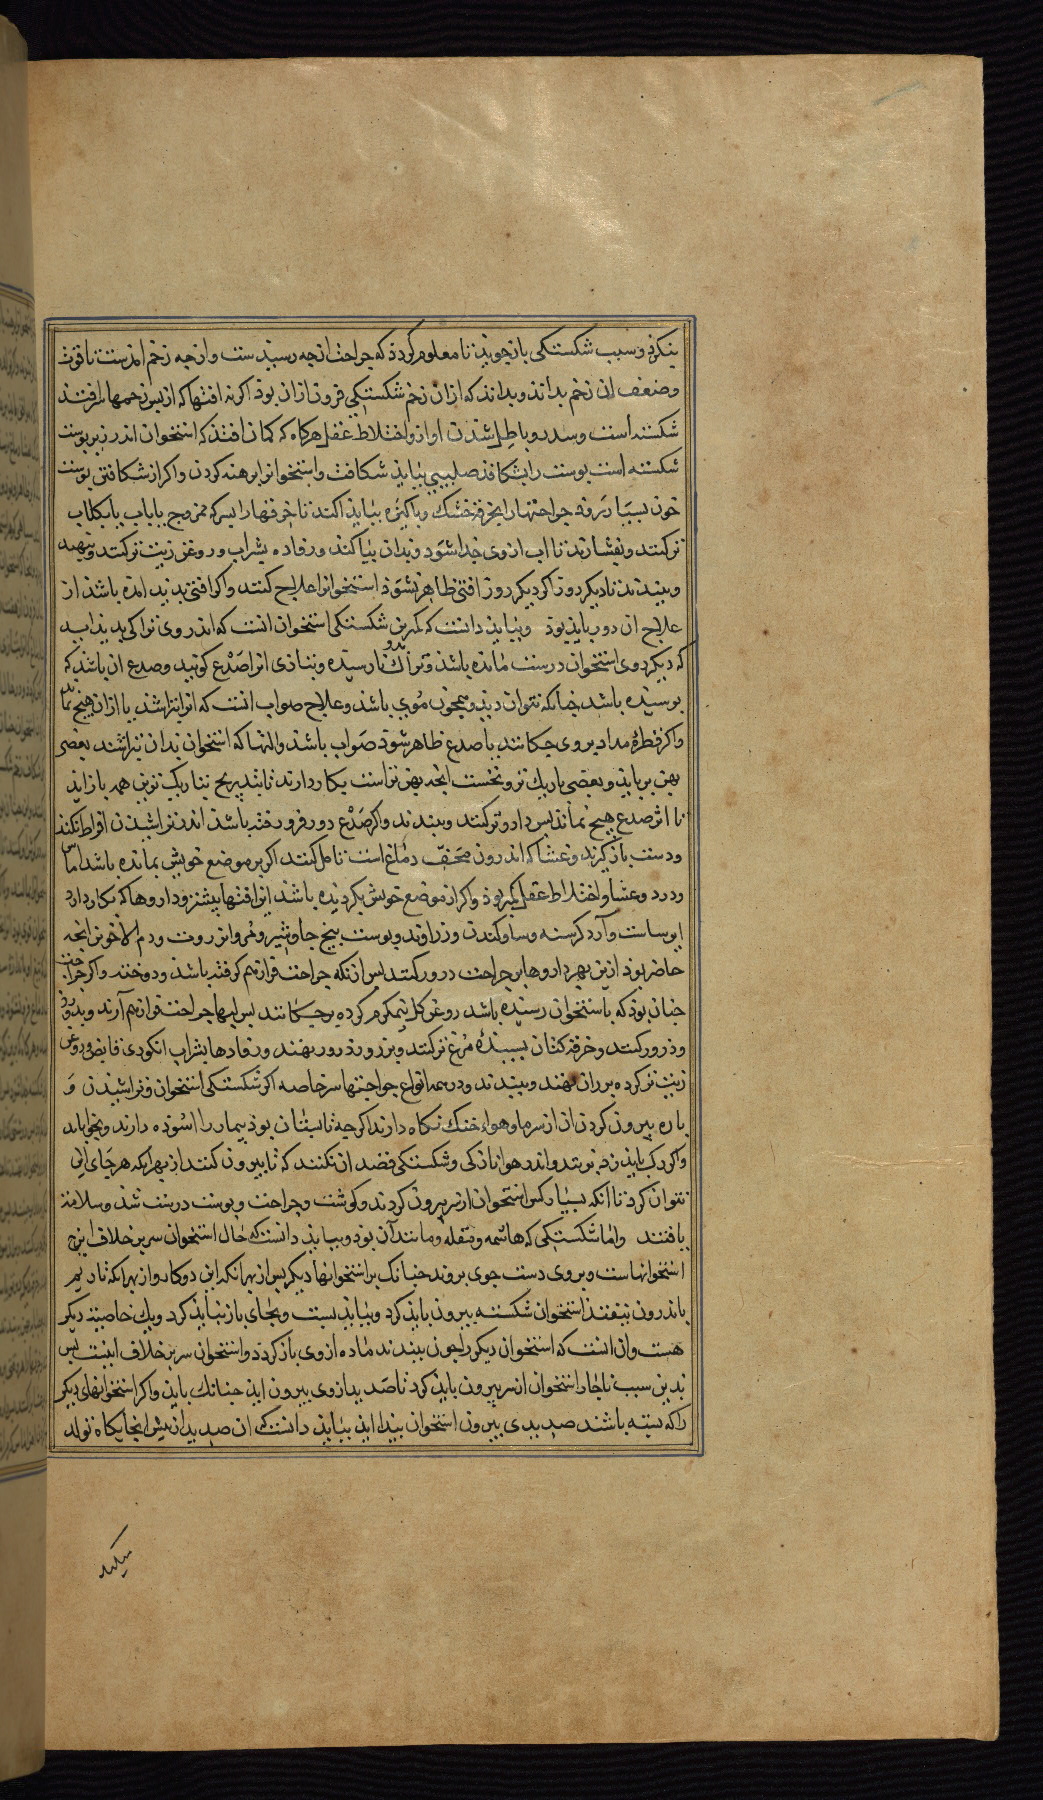 بنکرذ و سبب شکستکی بازجویذ تا معلوم کردذ که جراحت از چه رسیذست و از چه زخم امذست تا قوت
وضعف ان زخم بدانذ و بدانذ که ازان زخم شکستکی فزون ازان بوذ اکر نه افتها که از پس زخمها افتذ
شکسته است و سدر و باطل شدن اواز و اختلاط عقل هرکاه که کمان افتذ که استخوان اندر زیر پوست
شکسته است پوست را بشکافذ صلیبی بیایذ شکافت و استخوانرا برهنه کردن و اکر از شکافتن پوست
خون بسیار رفه جراحتها را بخرقه خشک و پاکیزه بیایذ اکند تا خرقها را بسرکه ممزوج باب یا بکلاب
تر کنند و بفشارند تا اب ازوی جذا شود و بدان بیاکند و رفاده بشراب و روغن زیت تر کنند و بنهند
و ببندند تا دیکر روز اکر دیکر روز افتی ظاهر نشود استخوانرا علاج کنند و اکر افتی بدید امذه باشذ از
علاج ان دور بایذ بوذ و ببایذ دانست که کمترین شکستکی استخوان انست که اندر وی تراکی بدیذ ایذ
که دیکر روی استخوان درست مانده باشذ و تراک بدو نارسیذه و بتازی انرا صدع کویند و صدع ان باشذ که
پوسیذه باشد چنانکه نتوان دیذ و همچون مویی باشذ و علاج صواب انست که انرا بتراشذ تا ازان هیچ نماند
و اکر قطره مداد بر وی چکانند یا صدع ظاهر شوذ صواب باشذ و التها که استخوان بدان بتراشند بعضی
پهن بریایذ و بعضی باریک تر و نخست انچه پهن تر است بکار دارند تا بتدریج بباریک ترین همه باز ایذ
تا اثر صدع هیچ نمانذ پس دارو ترکنند و ببندند و اکر صدع دور فرو رفته باشذ اندر تراشیذن افراط نکند
و دست باز کیرند و غشا که اندرون محف دماغ است تامل کنند اکر بر موضع خویش بمانده باشد اماس
و درد و غشا و اختلاط عقل کمتر بوذ و اکر از موضع خویش بکردیده باشذ این افتها بیشتر و داروها که بکار دارد
ایوساست و آرد کرسنه و ساو کندن و زراوند و پوست بیخ جاوشیر و مر و انزروت و دم الاخوین انچه
حاضر بوذ ازین بهر داروها بر جراحت ذرور کنند پس از انکه جراحت فراز هم کرفته باشذ و دوخته و اکر جراحت
چنان بوذ که باستخوان رسیذه باشد روغن کل نیمکرم کرده برچکانند پس لبها جراحت فراز هم آرند و بدوزند
و ذرور کنند و خرقه کتان بسپیذه مرغ تر کنند و بر زور ذرور بنهند و رفادها بشراب انکوری قابض و روغن
زیت تر کرده بر زر آن نهند و ببندند و در همه انواع جراحتها سر خاصه اکر شکستکی استخوان و تراشیذن و
باره بیرون کردن ان از سرما و هواء خنک نکاه دارند اکرچه تابستان بوذ بیمار را اسوده دارند و بخواباند
و اکر رک بایذ زد توبتد و اندر هوا تازکی و شکستکی فصد ان نکنند که تا بیرون کنند از بهر انکه هر جای این
نتوان کرد تا انکه بسیار کس استخوان از سر بیرون کردند و کوشت و جراحت و پوست درست شذ و سلامت
یافتند و اما شکستکی که هاشمه و منقله و مانند آن بوذ و ببایذ دانست که حال استخوان سر بر خلاف این
استخوانهاست و بروی دست جوی بروند چنانک بر استخوانها دیکر پس از بهر انکه این دو کار و از بهر انکه تا ریم
باندرون نیفتذ استخوان شکسته بیرون بایذ کرد و نبایذ بست و بجای باز نبایذ کرد و یک خاصیت دیکر
هست و ان انست که استخوان دیکر را چون ببندند ماده از وی باز کردذ و استخوان سر بر خلاف اینست پس
بدین سبب ناجار استخوان از سر بیرون بایذ کرد تا صدید ازوی بیرون ایذ چنانک بایذ و اکر استخوانهای دیکر
را که بسته باشند صدیدی بیرون استخوان پیذا ایذ ببایذ دانست که ان صدید از میان انجایکاه تولد
میکند